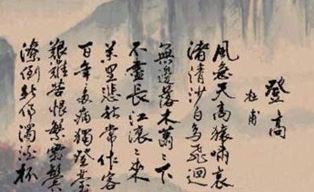 登高
杜甫
風急天高猿嘯哀
渚清沙白鳥飛迴
無邊落木蕭々下
不盡長江滾々來
萬里悲秋常作客
百年多病獨登臺
艱難苦恨繁霜鬢
潦倒新停濁酒杯